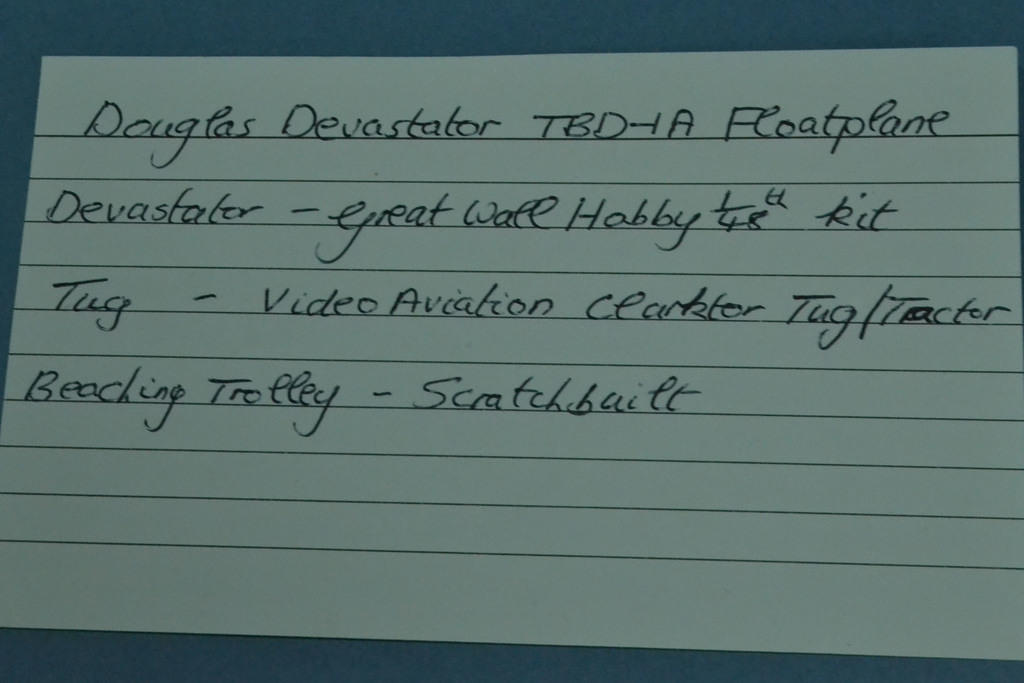 Douglas Devastator TBD-1A Floatplane
Devastator - Great Wall Hobby 1/48th kit
Tug - Video Aviation Clarktor Tug/Tractor
Beaching Trolley - Scratchbuilt